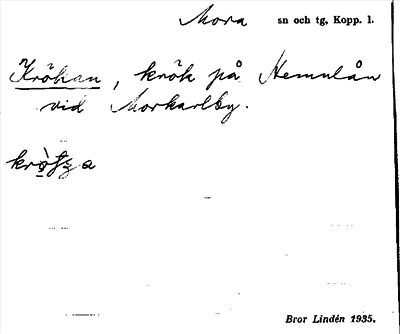 Mora sn och tg, Kopp. l.
Kröken, krök på Hemulån
vid Morkarlby.
Bror Lindén 1935.